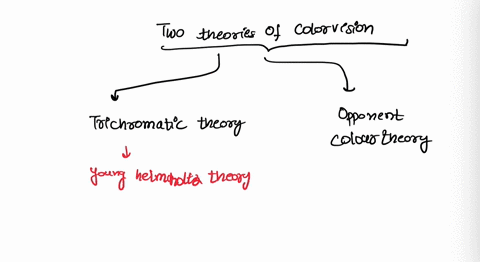 Two theories of Colorvision
Trichromatic theory
Opponent
Colour theory
Young helmholtz theory